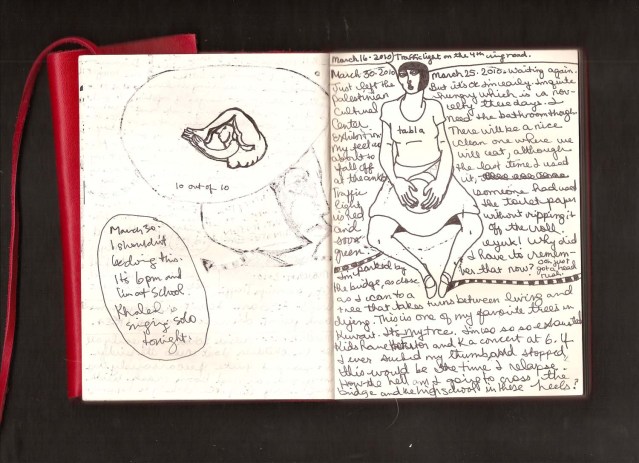 10 out of 10
March 30.
I shouldn't
be doing this.
It's 6pm and
I'm at School.
Khaled is
singing solo
tonight.
March 16. 2010 / Traffic light on the 4th ring road.
March 30. 2010
Just left the
Palestinian
Cultural
Center
Exhibition
My feet are
about to
fall off
at the ankles
Traffic
light
is red
and
so is
green.
tabla
March 25. 2010. Waiting again.
But it's ok I'm early. I'm quite
hungry which is a nov-
elty these days. I
need the bathroom though
There will be a nice
clean one where we
will eat, although
the last time I used
it,
someone had used
the toilet paper
without ripping it
off the roll.
eyuk! Why did
I have to remem-
ber that now? Oh, just
got a head
rush.
I'm parked by
the bridge, as close
as I can to a
tree that takes turns between living and
dying. This is one of my favorite trees in
Kuwait. It's my tree. I'm so so so exhausted
Kids have and K a concert at 6. If
I ever sucked my thumb and stopped,
this would be the time I relapse.
How the hell am I going to cross the
bridge and the high school in these heels?